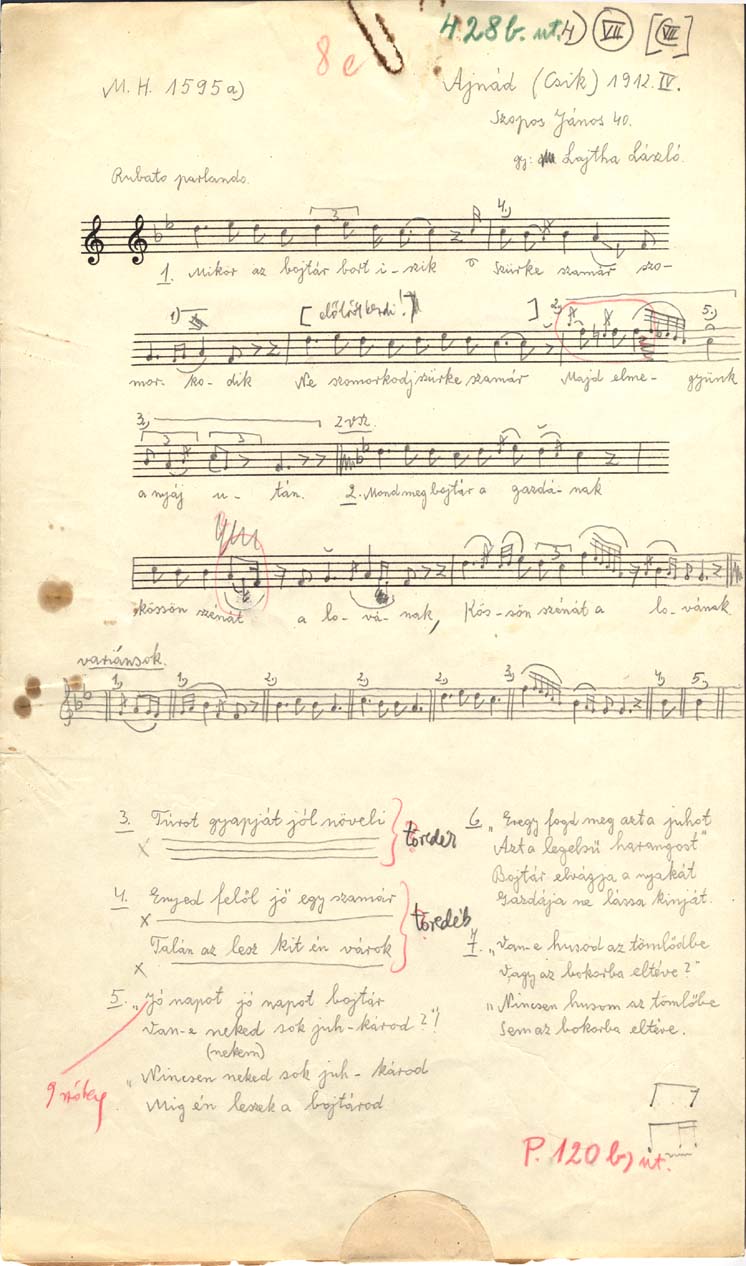 428b. ut. 4) VII [VII]
8c
M. H. 1595a)
Ajnád (Csik) 1912. IV.
Szopos János 40.
gy: Lajtha László.
Rubato parlando.
3 4.)
1. Mikor az bojtár bort i-szik Szürke szamár szo-
1) [ előlről kezdi! ] 2) 5.)
mor- ko- dik Ne szomorkodj szürke szamár Majd elme- gyünk
3) 3 3 2 vsz.
a nyáj u- tán. 2. Mond meg bojtár a gazdá- nak
3
kössön szénát a lo- vá- nak, Kös-sön szénát a lo- vának
variánsok.
1) 1) 2) 2) 2) 3) 4) 5)
3. Túrot gyapját jól növeli
töredék
4. Enyed felől jő egy szamár
Talán az lesz kit én várok
töredék
5. „Jó napot jó napot bojtár
Van-e neked sok juh-károd?"!
(nekem)
„Nincsen neked sok juh-károd
Mig én leszek a bojtárod
6 „Eregy fogd meg azt a juhot
Azt a legelsű harangost"
Bojtár elvágja a nyakát
Gazdája ne lássa kinját.
7. „Van-e husod az tömlődbe
Vagy az bokorba eltéve?"
„Nincsen husom az tömlőbe
Sem az bokorba eltéve.
P. 120 b) ut.